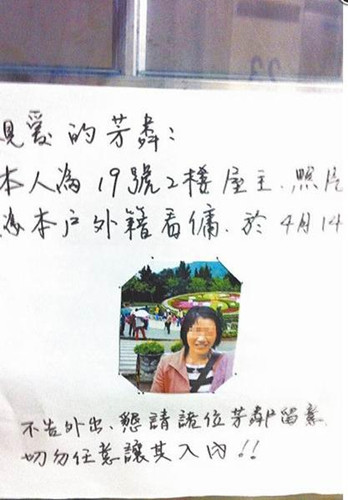 親愛的芳鄰：
本人為19號2樓屋主.照片
為本戶外籍看傭.於4月14
不告外出、懇請諸位芳鄰留意
切勿任意讓其入內!!